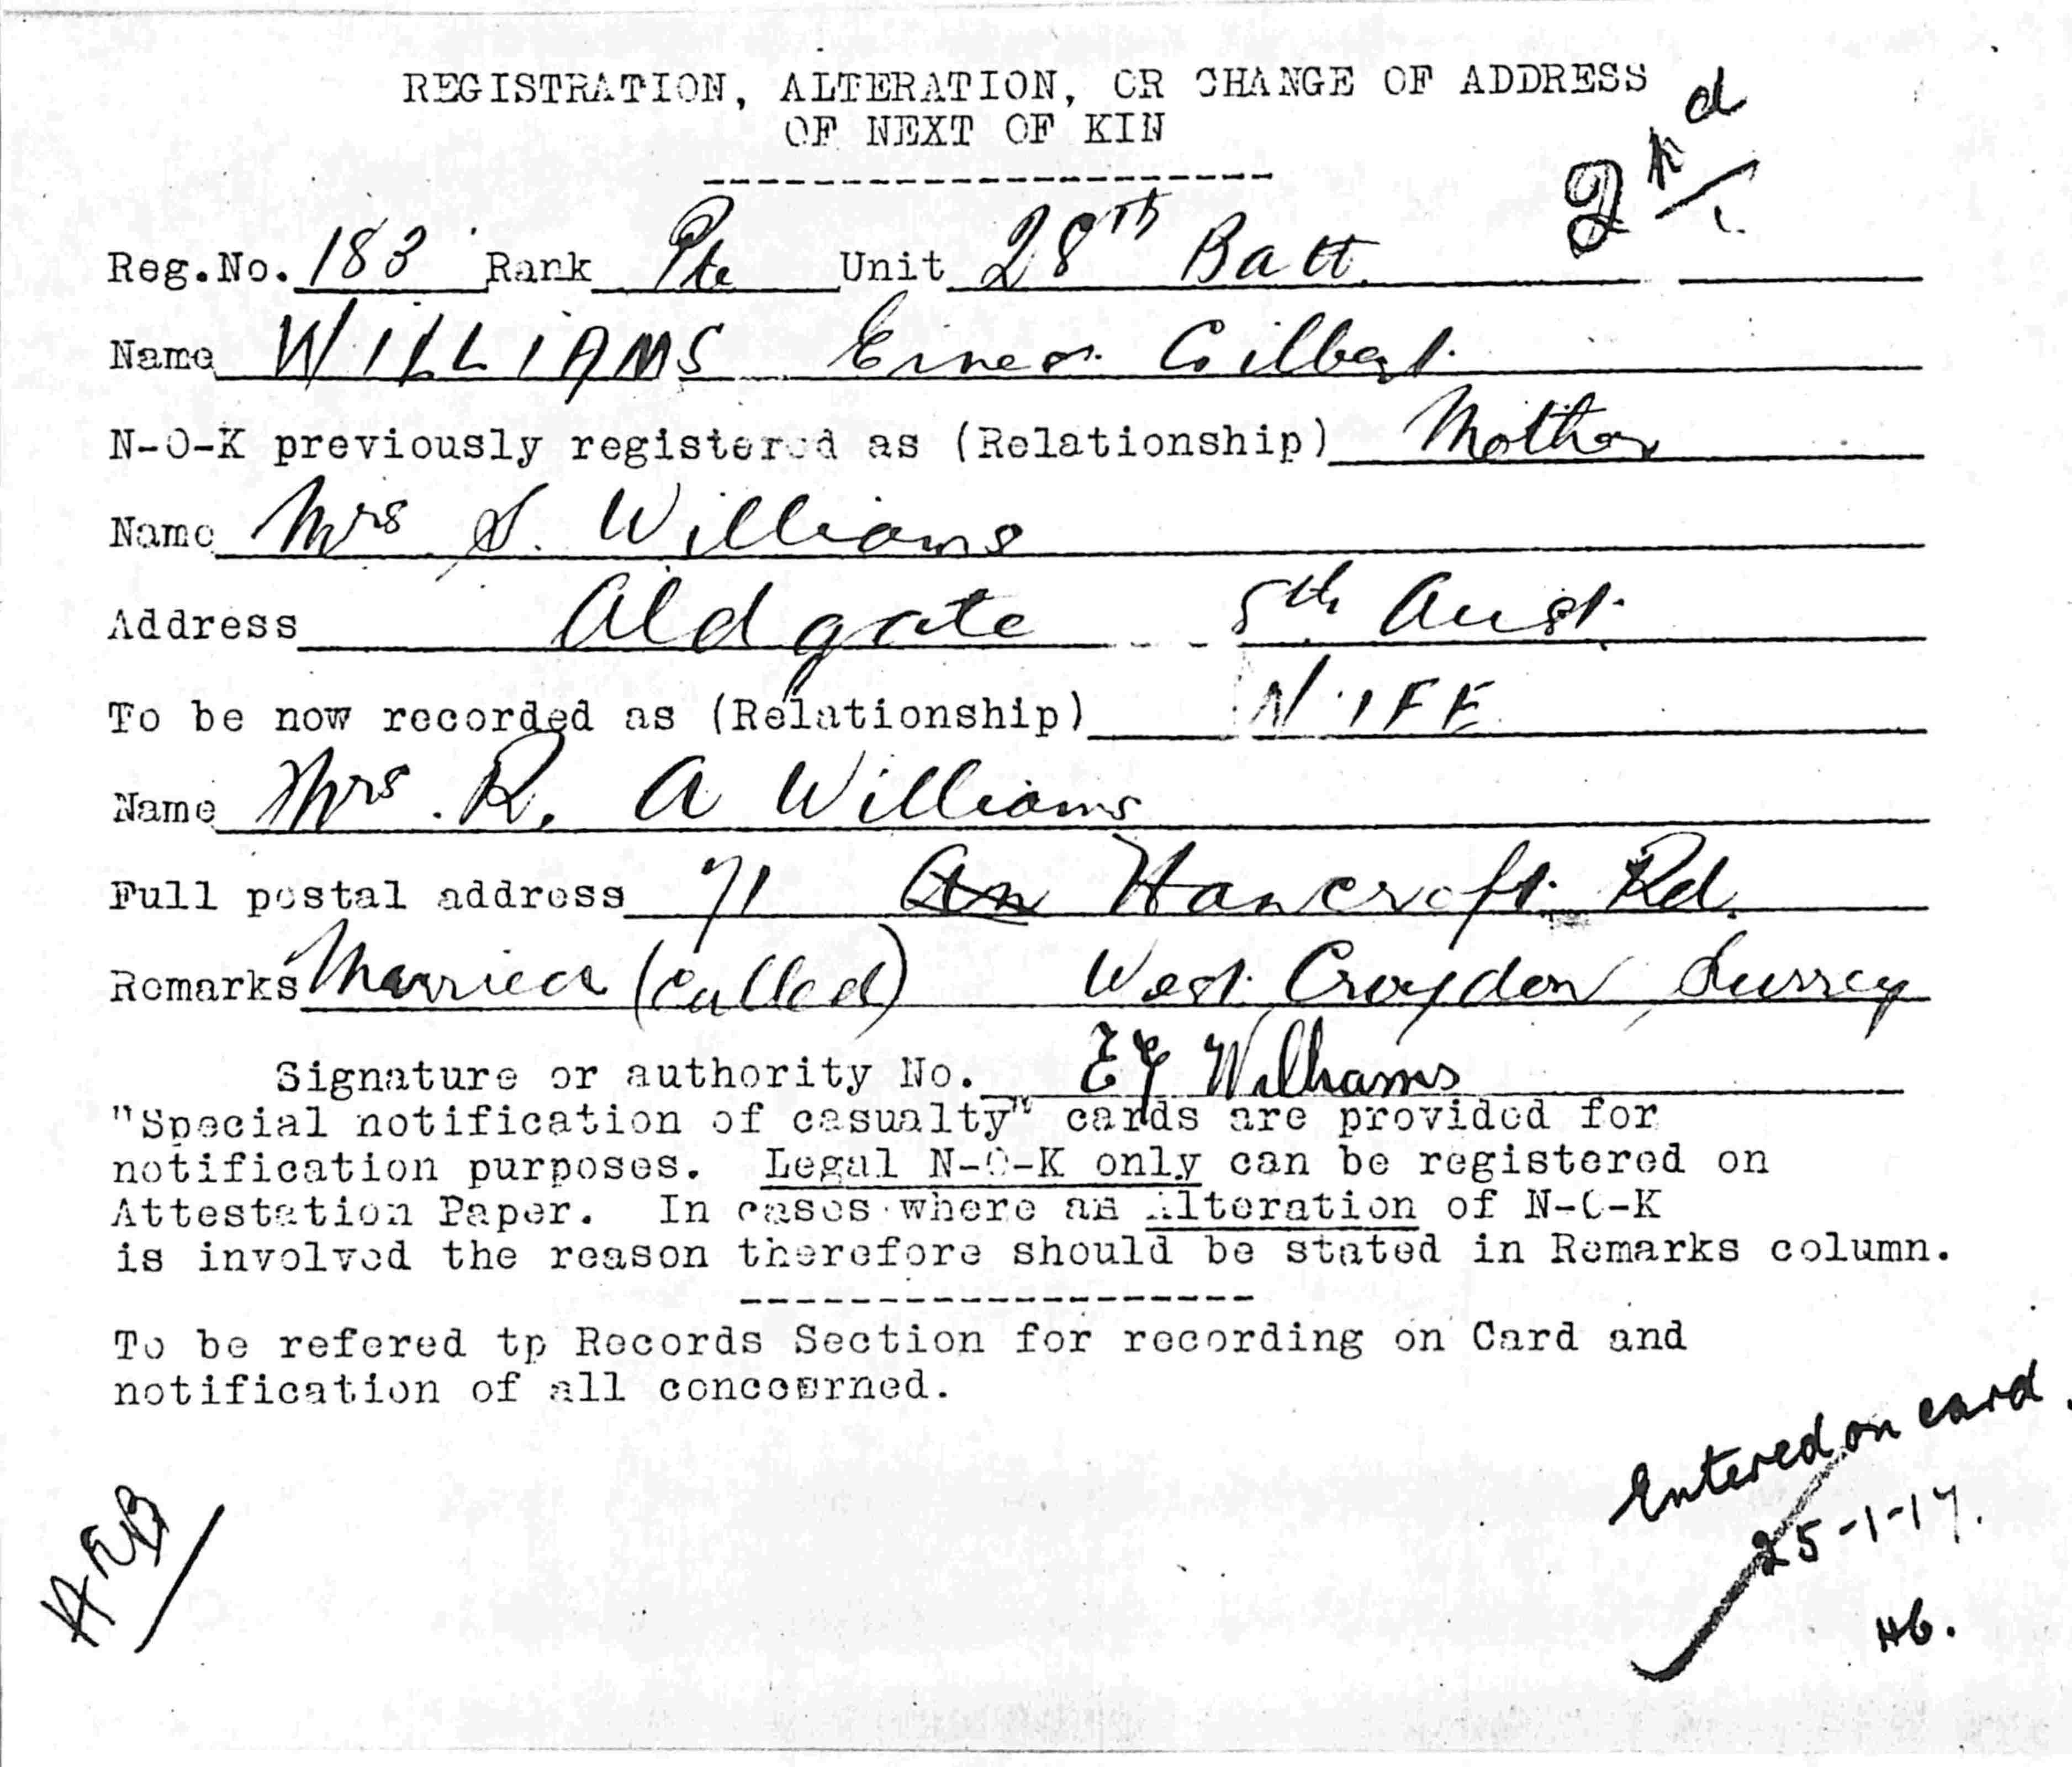 REGISTRATION, ALTERATION, OR CHANGE OF ADDRESS
OF NEXT OF KIN
2nd
Reg.No. 183 Rank Pte Unit 28th Batt.
Name WILLIAMS Ernest Gilbert
N-O-K previously registered as (Relationship) Mother
Name Mrs S. Williams
Address Aldgate Sth Aust.
To be now recorded as (Relationship) WIFE
Name Mrs. R. A Williams
Full postal address 71 Rd.
Remarks Married (called) West Croydon Surrey
Signature or authority No. EG Williams
"Special notification of casualty" cards are provided for
notification purposes. Legal N-O-K only can be registered on
Attestation Paper. In cases where an Alteration of N-O-K
is involved the reason therefore should be stated in Remarks column.
To be refered tp Records Section for recording on Card and
notification of all concerned.
Entered on card.
25-1-17.